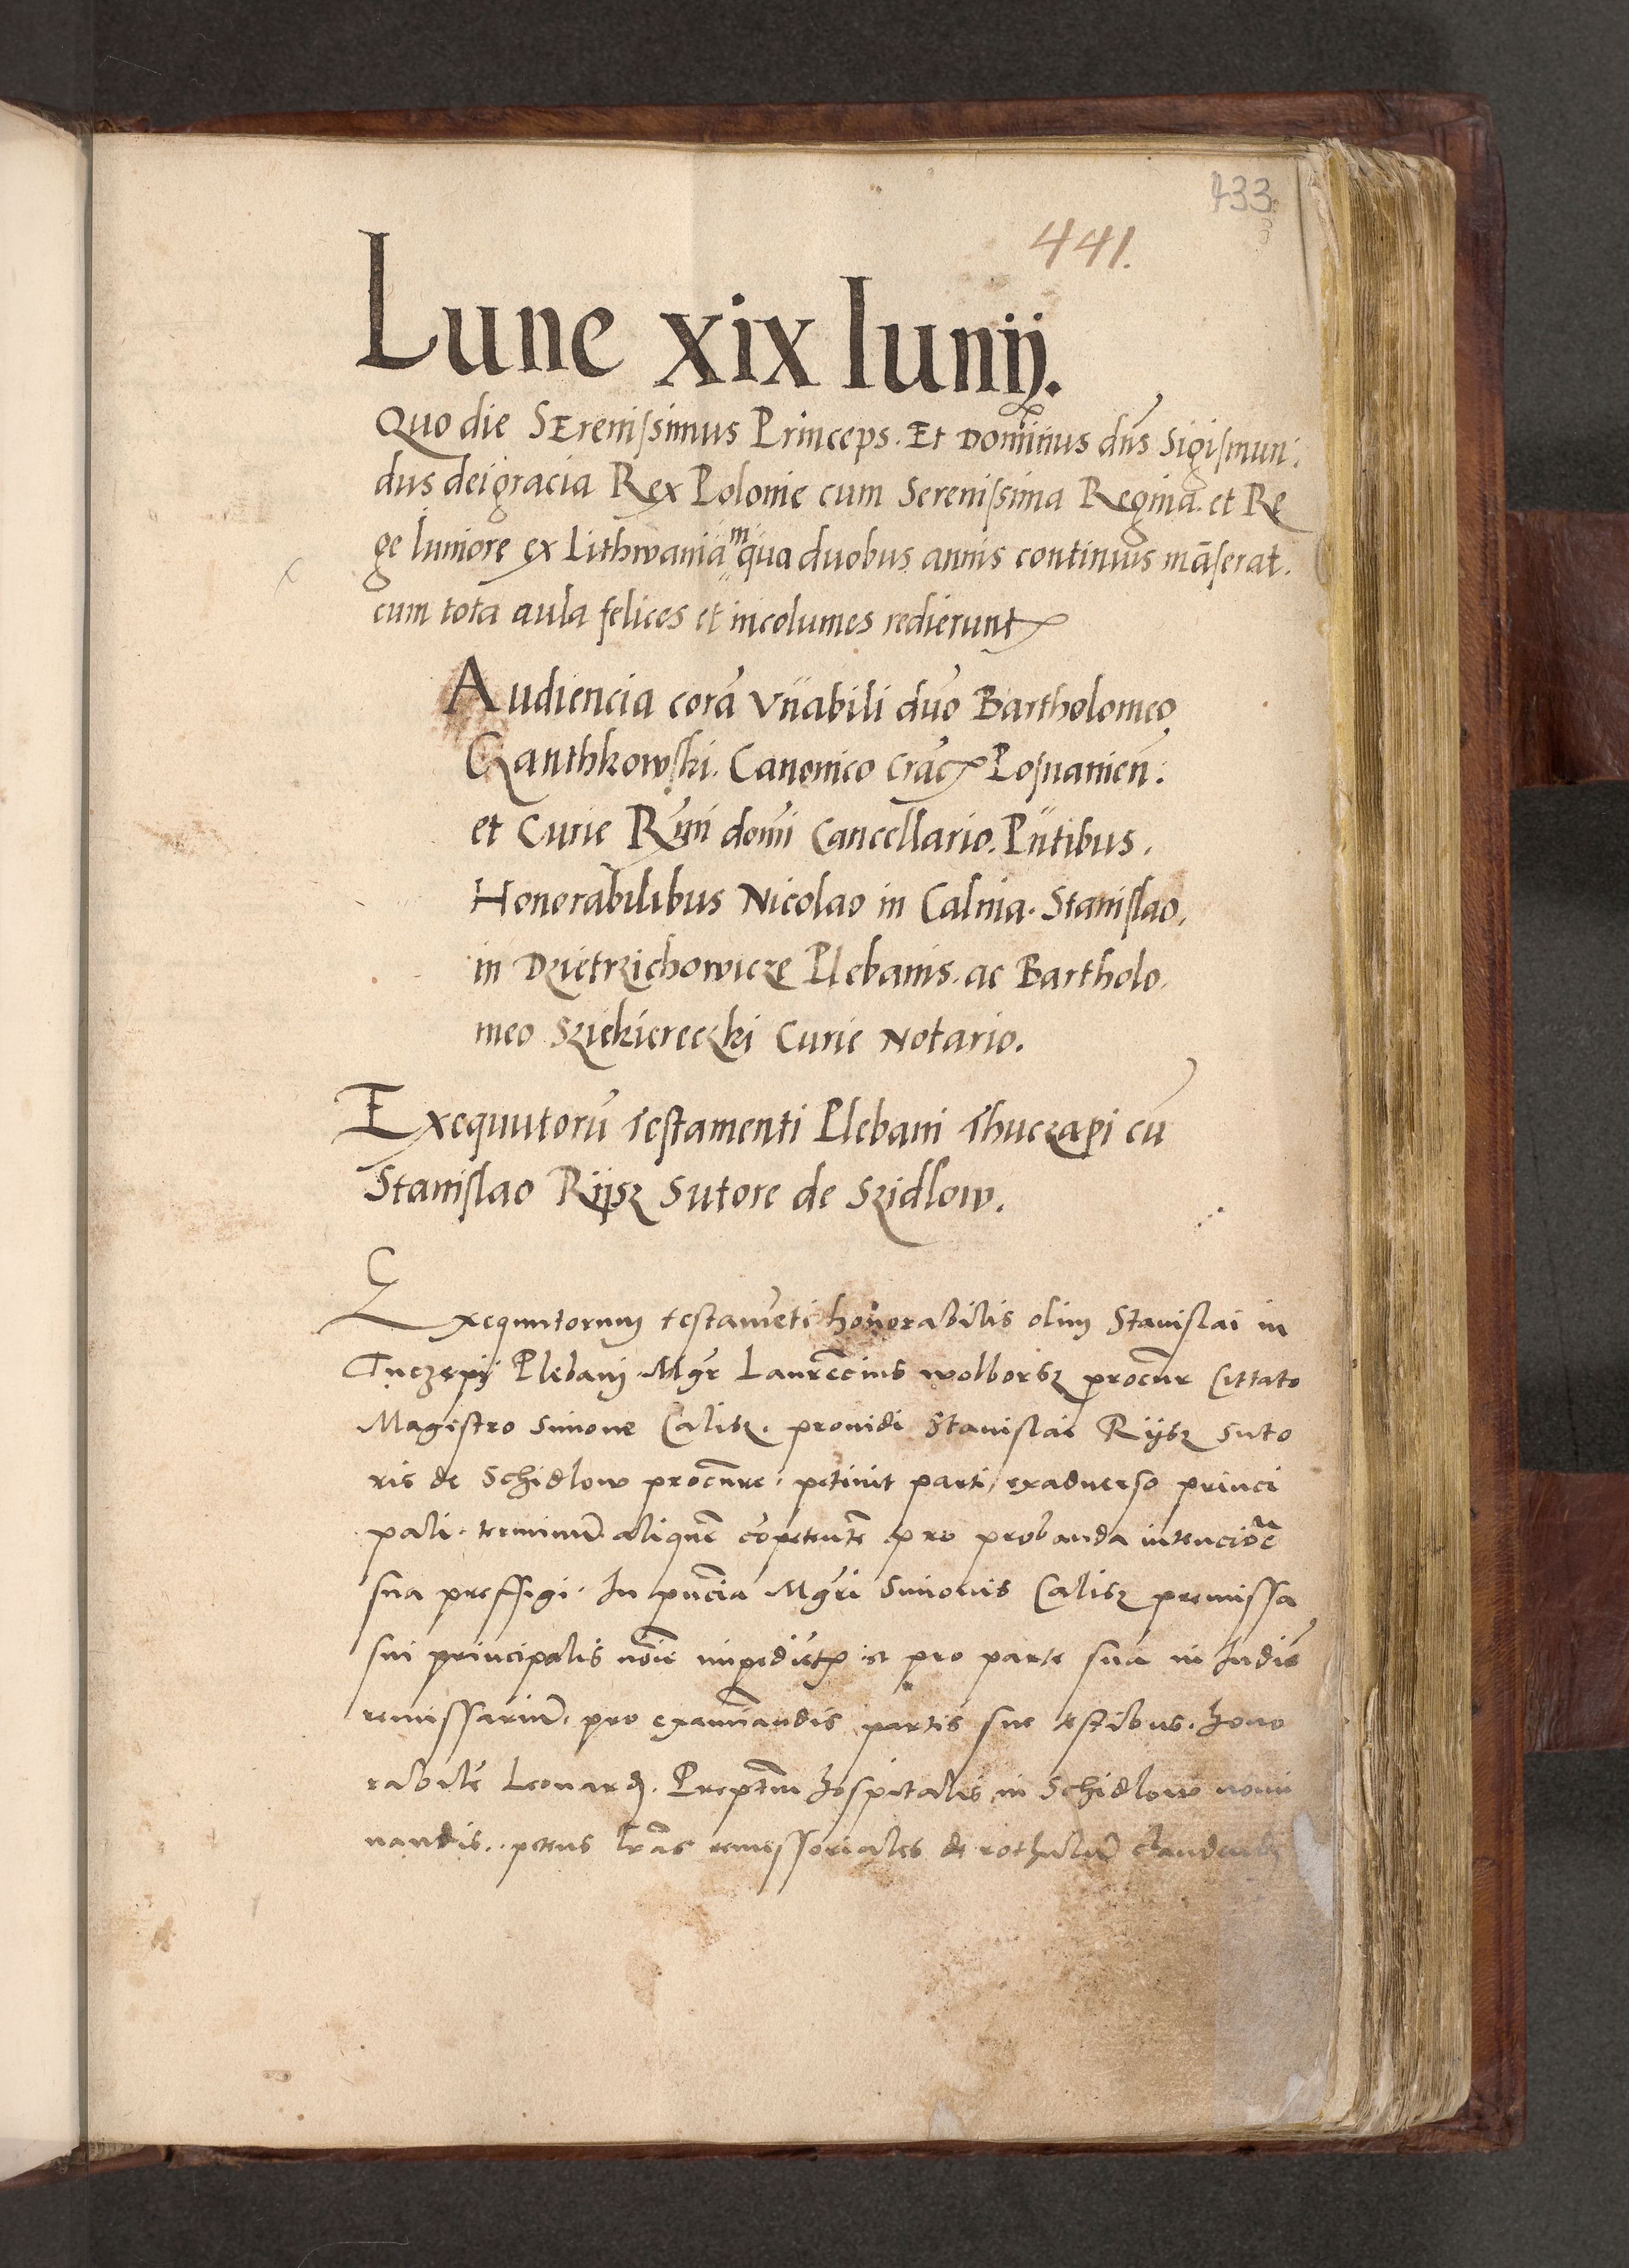 433
441.
Lune xix Iunij.
Quo die SErenissimus Princeps. Et Dominus dn̄s Sigismun.
dus deigracia Rex Polonie cum Serenissima Regina. et Re
ge Iuniore ex Lithwania in qua duobus annis continuis māserat.
cum tota aula felices et incolumes redierunt
Audiencia corā Vn̄abili dn̄o Bartholomeo
Ganthkowski. Canonico Crac̄ Posnanien̄.
et Curie Rm̄i domī Cancellario. Pn̄tibus.
Honorabilibus Nicolao in Calnia. Stanislao.
in Dzietrzichowicze Plebanis. ac Bartholo.
meo Sziekiereczki Curie Notario.
Exequutorū Testamenti Plebani Thuczapi cū
Stanislao Rijsz Sutore de Szidlow.
Exequutorum testamēti honorabilis olim Stanislai in
Tuczepij Plebani Mgr̄ Laurēcius wolborsz procur̄ Cittato
Magistro Simone Calisz. prouidi Stanislai Rijsz Suto
ris de Schidlow procur̄e. petiuit parti exaduerso princi
pali. terminū aliquē cōpetentē pro probanda intenciōe
sua prefsigi. In pn̄cia Mgr̄i Simonis Calisz premissa
sui principalis noīe impediētis et pro parte sua in Iudicē
remissariū. pro examinandis partis sue testibus. Hono
rabilē Leonard. Preptm̄ hospitalis in Schidlow nomi
nandis. petens lr̄as remissoriales de rothulum claudendi